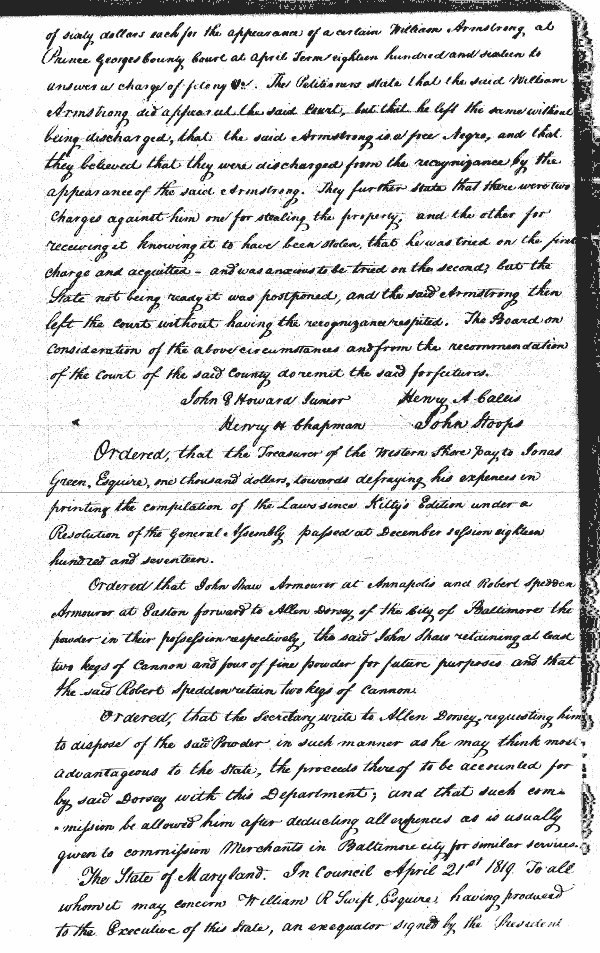 of sixty dollars each for the appearance of a certain William Armstrong, at
Prince Georges County Court at April Term eighteen hundred and sixteen to
answer a charge of felony &c. The Petitioners state that the said William
Armstrong did appear at the said Court, but that he left the same without
being discharged, that the said Armstrong is a free Negro, and that
they believed that they were discharged from the recognizance by the
appearance of the said Armstrong. They further state that there were two
Charges against him one for stealing the property, and the other for
receiving it knowing it to have been stolen, that he was tried on the first
charge and acquitted - and was anxious to be tried on the second; but the
State not being ready it was postponed, and the said Armstrong then
left the Court without having the recognizance respited. The Board on
consideration of the above circumstances and from the recommendation
of the Court of the said County do remit the said forfeitures.
John B Howard Junior Henry A Callis
Henry H Chapman John Stoops
Ordered, that the Treasurer of the Western Shore pay to Jonas
Green, Esquire, one thousand dollars, towards defraying his expences in
printing the compilation of the Laws since Kilty's Edition under a
Resolution of the General Assembly passed at December session eighteen
hundred and seventeen.
Ordered that John Shaw Armourer at Annapolis and Robert Spedden
Armourer at Easton forward to Allen Dorsey of the City of Baltimore the
powder in their possession respectively, the said John Shaw retaining at least
two kegs of Cannon and four of fine powder for future purposes and that
the said Robert Spedden retain two kegs of Cannon.
Ordered, that the Secretary write to Allen Dorsey, requesting him
to dispose of the said Powder in such manner as he may think most
advantageous to the State, the proceeds thereof to be accounted for
by said Dorsey with this Department; and that such com-
-mission be allowed him after deducting all expences as is usually
given to commission Merchants in Baltimore city for similar services.
The State of Maryland. In Council April 21st 1819. To all
whom it may concern William R Swift Esquire, having produced
to the Executive of this State, an exequator signed by the President